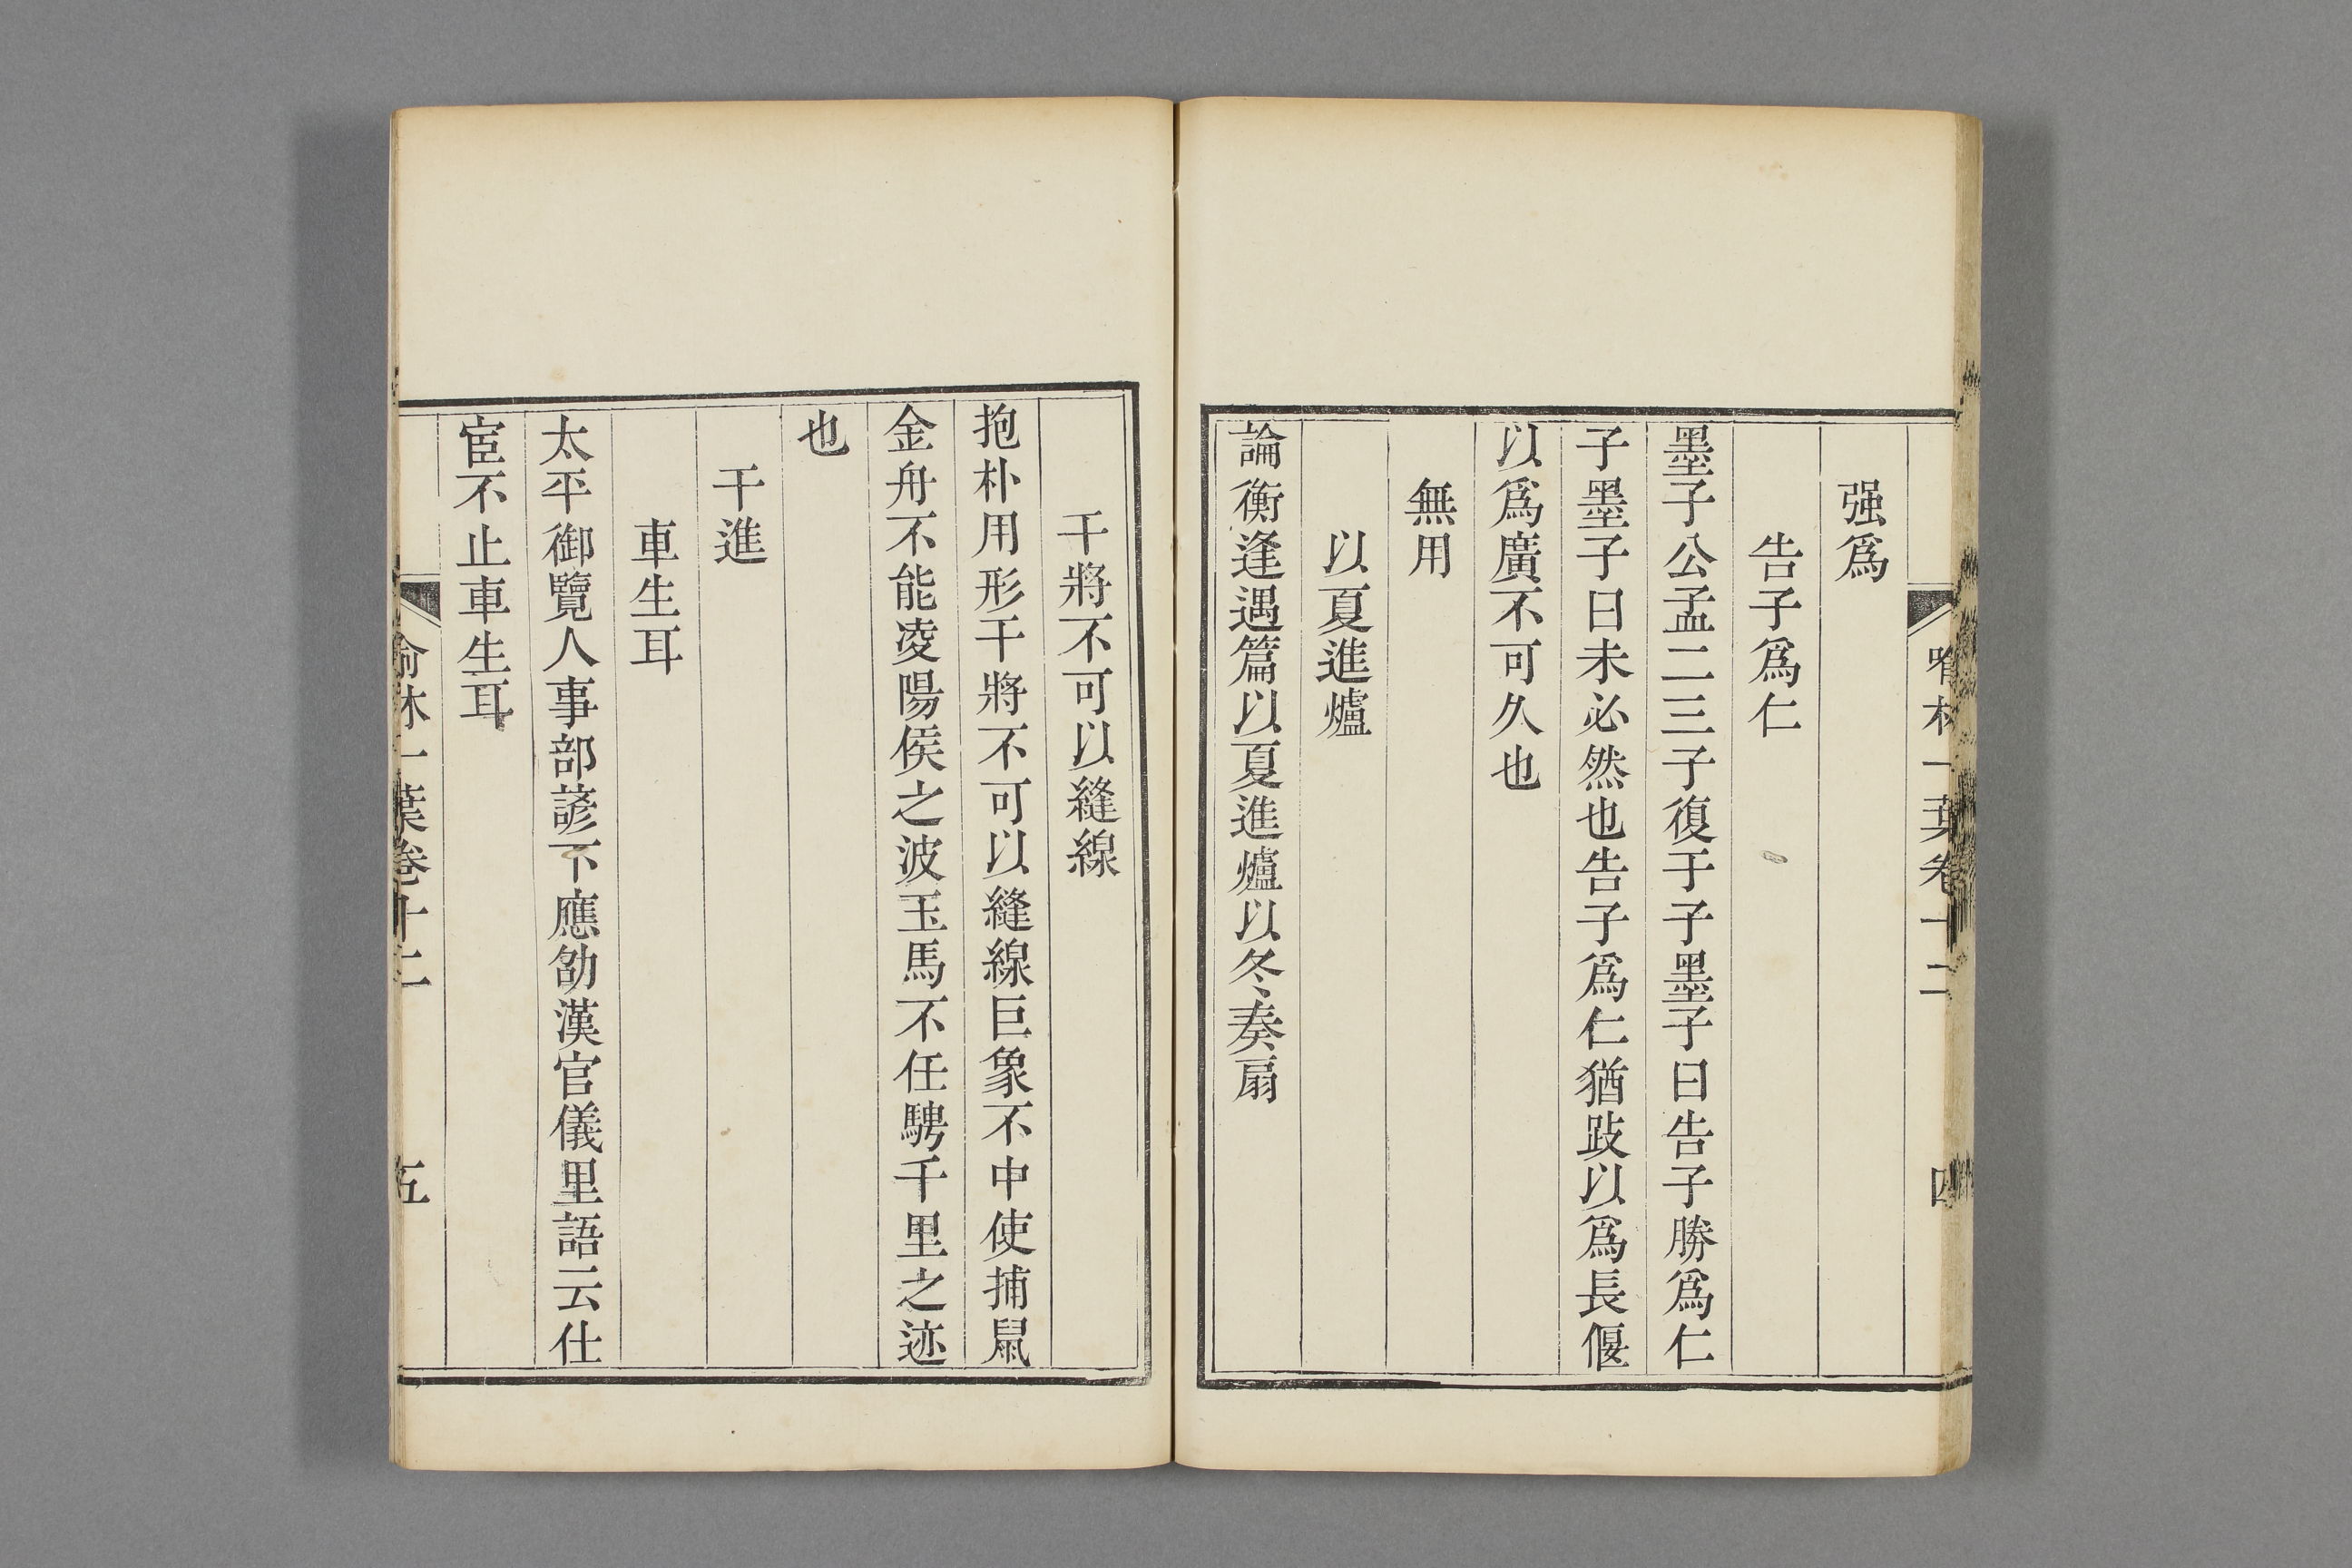 强爲
告子爲仁
墨子公孟二三子復于子墨子曰告子勝爲仁
子墨子曰未必然也告子爲仁猶跂以爲長偃
以爲廣不可久也
無用
以夏進爐
論衡逢遇篇以夏進爐以冬奏扇
干將不可以縫線
抱朴用形干將不可以縫線巨象不中使捕鼠
金舟不能凌陽侯之波玉馬不任騁千里之迹
也
干進
車生耳
太平御覽人事部諺下應劭漢官儀里語云仕
宦不止車生耳
喻林一葉卷十二
五